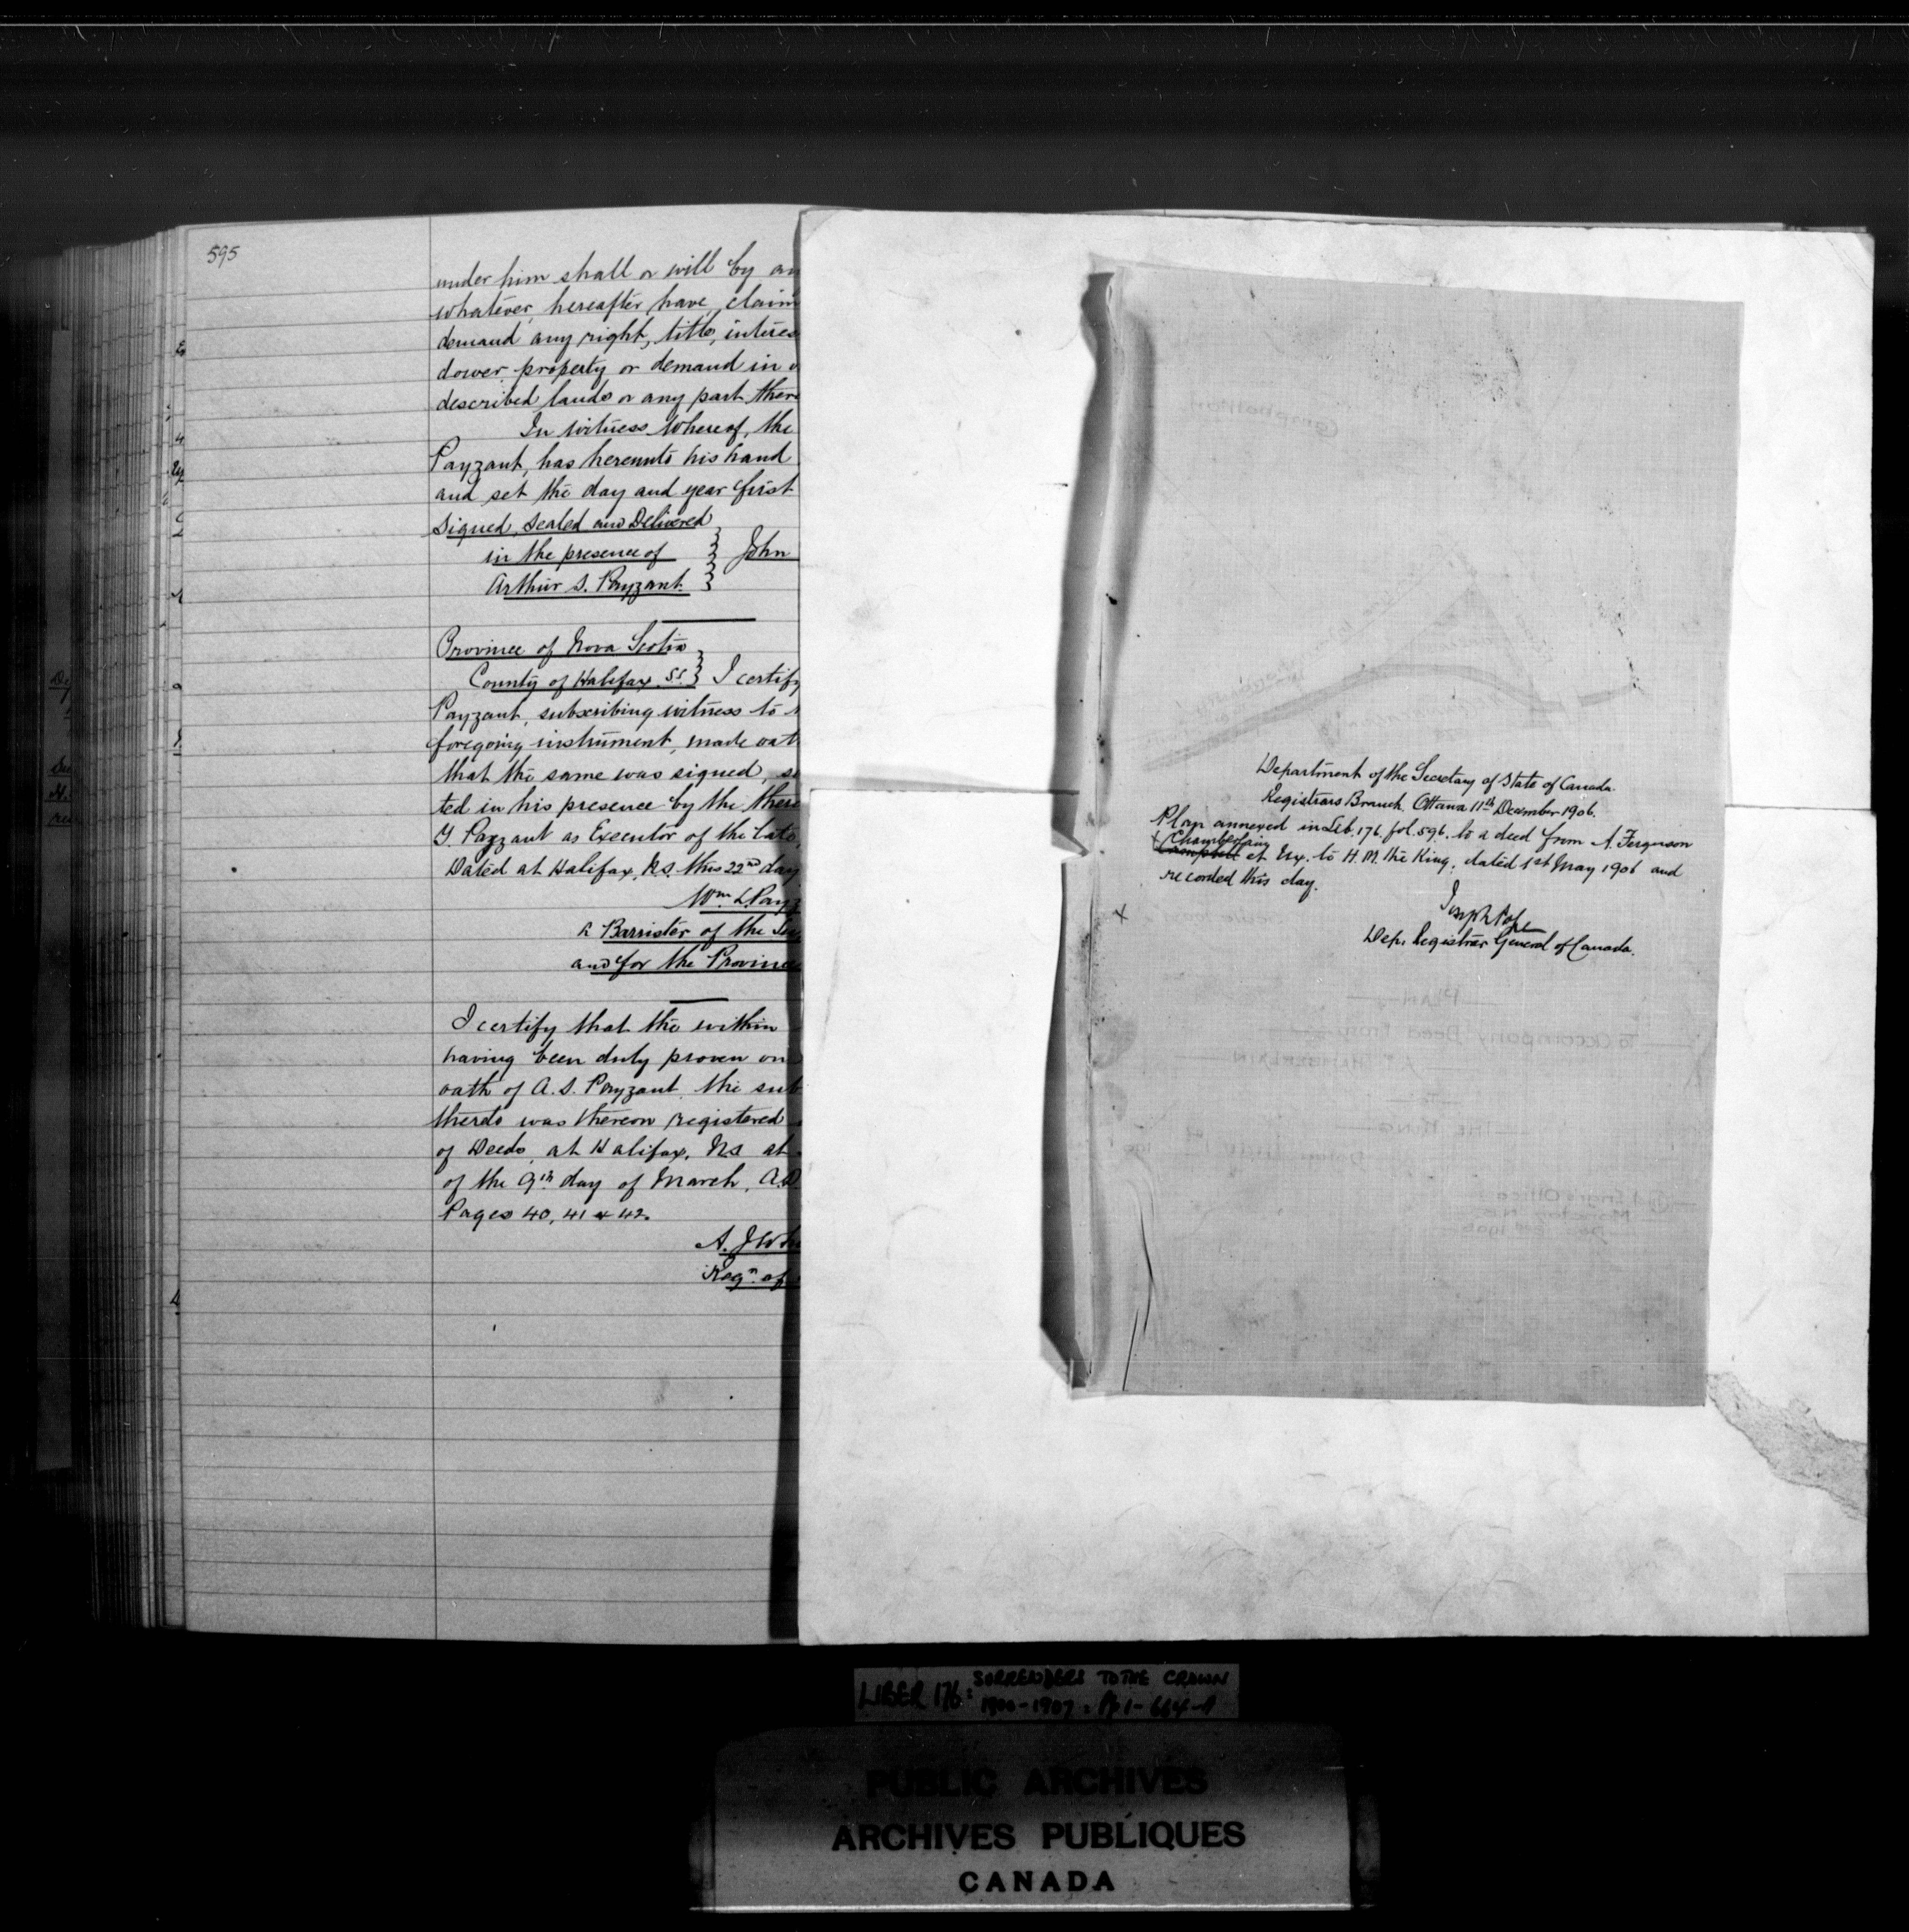 595
under him shall or will by an
whatever, hereafter have, claim
demand any right, title, interes
dower, property or demand in
described lands or any part there
In witness Whereof, the
Payzant, has hereunto his hand
and set the day and year first
Signed, Sealed and Delivered
in the presence of } John
Arthur S. Payzant }
Province of Nova Scotia
County of Halifax, SS. } I certify
Payzant, subscribing witness to
foregoing instrument, made oat
that the same was signed, se
ted in his presence by the there
Y. Payzant as Executor of the late
Dated at Halifax, N.S. this 22nd day
Wm. L. Payz
A Barrister of the Su
and for the Province
I certify that the within
having been duly proven on
oath of A. S. Payzant, the sub
thereto was thereon registered
of Deeds, at Halifax, N.S. at
of the 9th day of March, A.D.
Pages 40, 41 & 42.
A. J. Wh
Regr. of
Department of the Secretary of State of Canada.
Registrars Branch. Ottawa 11th December 1906.
Plan annexed in Lib. 176. fol. 596. to a deed from A. Ferguson
x Chamberlain
Campbell et Ux. to H. M. the King, dated 1st May 1906 and
recorded this day.
x
Joseph Pope
Dep. Registrar General of Canada.
PLAN
To Accompany Deed from
THE KING
Engrs Office
Moncton N.B.
LIBER 176: SURRENDERS TO THE CROWN
1900-1907: Pp 1-664-A
PUBLIC ARCHIVES
ARCHIVES PUBLIQUES
CANADA